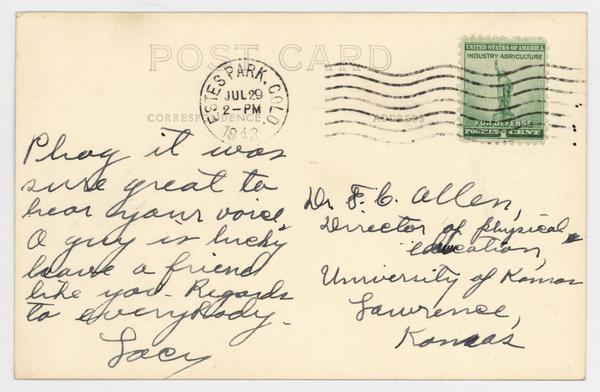 POST CARD
CORRESPONDENCE
ADDRESS
ESTES PARK, COLO.
JUL 29
2-PM
1943
UNITED STATES OF AMERICA
INDUSTRY AGRICULTURE
FOR DEFENSE
Phog it was
sure great to
hear your voice.
A guy is lucky
to have a friend
like you - Regards
to everybody.
Lacy
Dr. F. C. Allen,
Director of physical
education,
University of Kansas
Lawrence,
Kansas